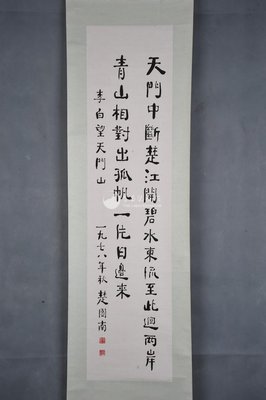 天門中斷楚江開碧水東流至此迴兩岸
青山相對出孤帆一片日邊來
李白望天門山
一九七八年秋楚圖南